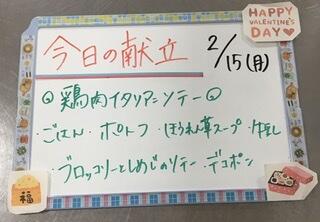 HAPPY
VALENTINE'S
DAY
今日の献立 2/15(月)
鶏肉イタリアンソテー
・ごはん・ポトフ・ほうれん草スープ・牛乳
・ブロッコリーとしめじのソテー・デコポン
福